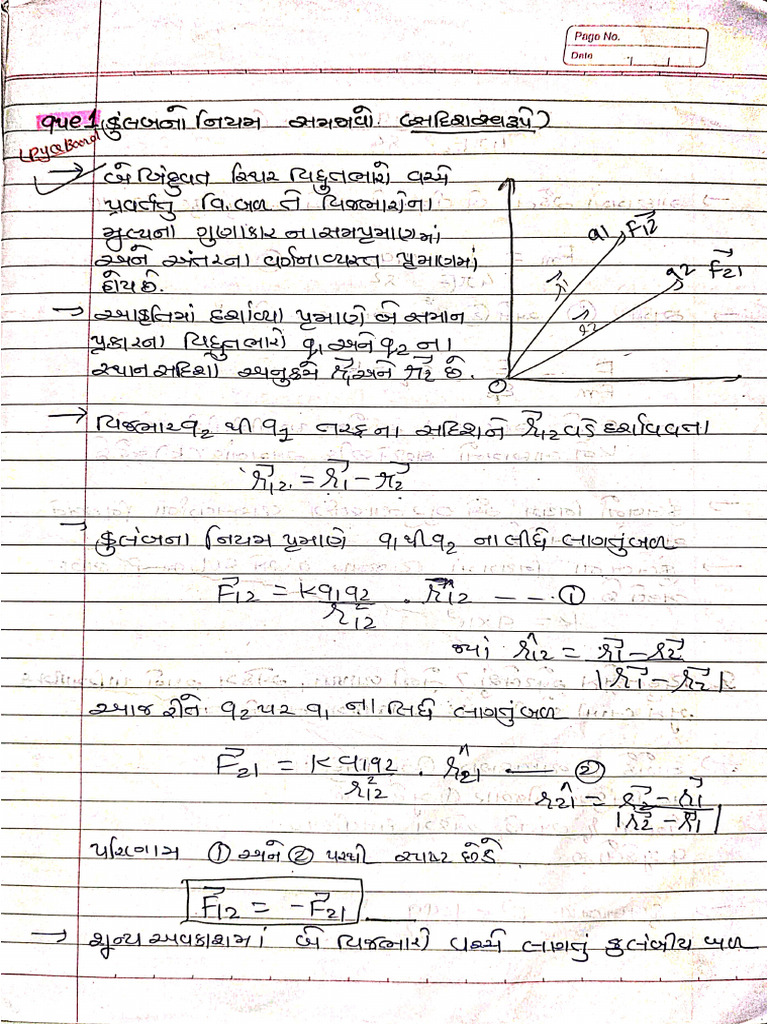 Page No.
Date
que 1 કુલંબનો નિયમ સમજાવો (સદિશસ્વરૂપે)
(PYQ Board)
→ બે બિંદુવત સ્થિર વિદ્યુતભારો વચ્ચે
પ્રવર્તતુ વિ.બળ તે વિજભારોના
મુલ્યના ગુણાકાર ના સમપ્રમાણમાં
અને અંતરના વર્ગના વ્યસ્ત પ્રમાણમાં
હોય છે.
q1 F⃗12
q2 F⃗21
r⃗1
r⃗2
O
→ આકૃતિમાં દર્શાવ્યા પ્રમાણે બે સમાન
પ્રકારના વિદ્યુતભારો q1 અને q2 ના
સ્થાન સદિશો અનુક્રમે r⃗1 અને r⃗2 છે.
→ વિજભાર q2 થી q1 તરફના સદિશને r⃗12 વડે દર્શાવવતા
r⃗12 = r⃗1 - r⃗2
→ કુલંબના નિયમ પ્રમાણે q1 થી q2 ના લીધે લાગતું બળ
F⃗12 = kq1q2/r²12 . r̂12 -- -- ①
જ્યાં r̂12 = r⃗1 - r⃗2 / |r⃗1 - r⃗2|
આજ રીતે q2 પર q1 ના લિધે લાગતું બળ
F⃗21 = kq1q2/r²12 . r̂21 -- ②
r̂21 = r⃗2 - r⃗1 / |r⃗2 - r⃗1|
પરિણામ ① અને ② પરથી સ્પષ્ટ છેકે
F⃗12 = -F⃗21
→ શૂન્ય અવકાશમાં બે વિજભારો વચ્ચે લાગતું કુલંબીય બળ